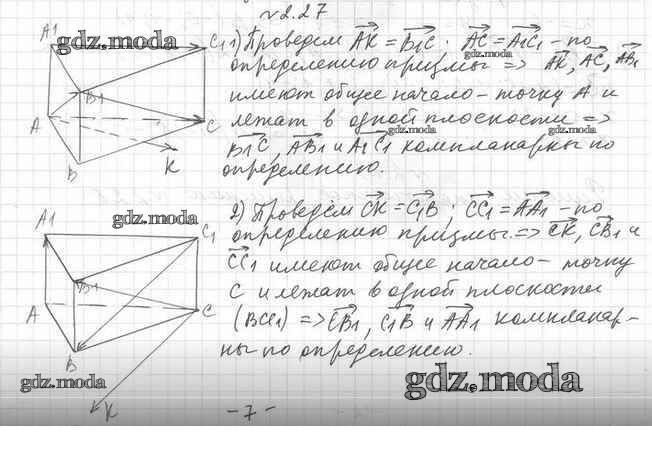 №2.27
1) Проведем AK = B1C; AC = A1C1 - по
определению призмы => AK, AC, AB1
имеют общее начало - точку A и
лежат в одной плоскости =>
B1C, AB1 и A1C1 компланарны по
определению.
A1
C1
B1
A
C
B
K
gdz.moda
gdz.moda
gdz.moda
gdz.moda
gdz.moda
2) Проведём CK = C1B; CC1 = AA1 - по
определению призмы. => CK, CB1 и
CC1 имеют общее начало - точку
C и лежат в одной плоскости
(BCC1) => CB1, C1B и AA1 компланар-
ны по определению.
A1
C1
B1
A
C
B
K
gdz.moda
gdz.moda
gdz.moda
- 7 -